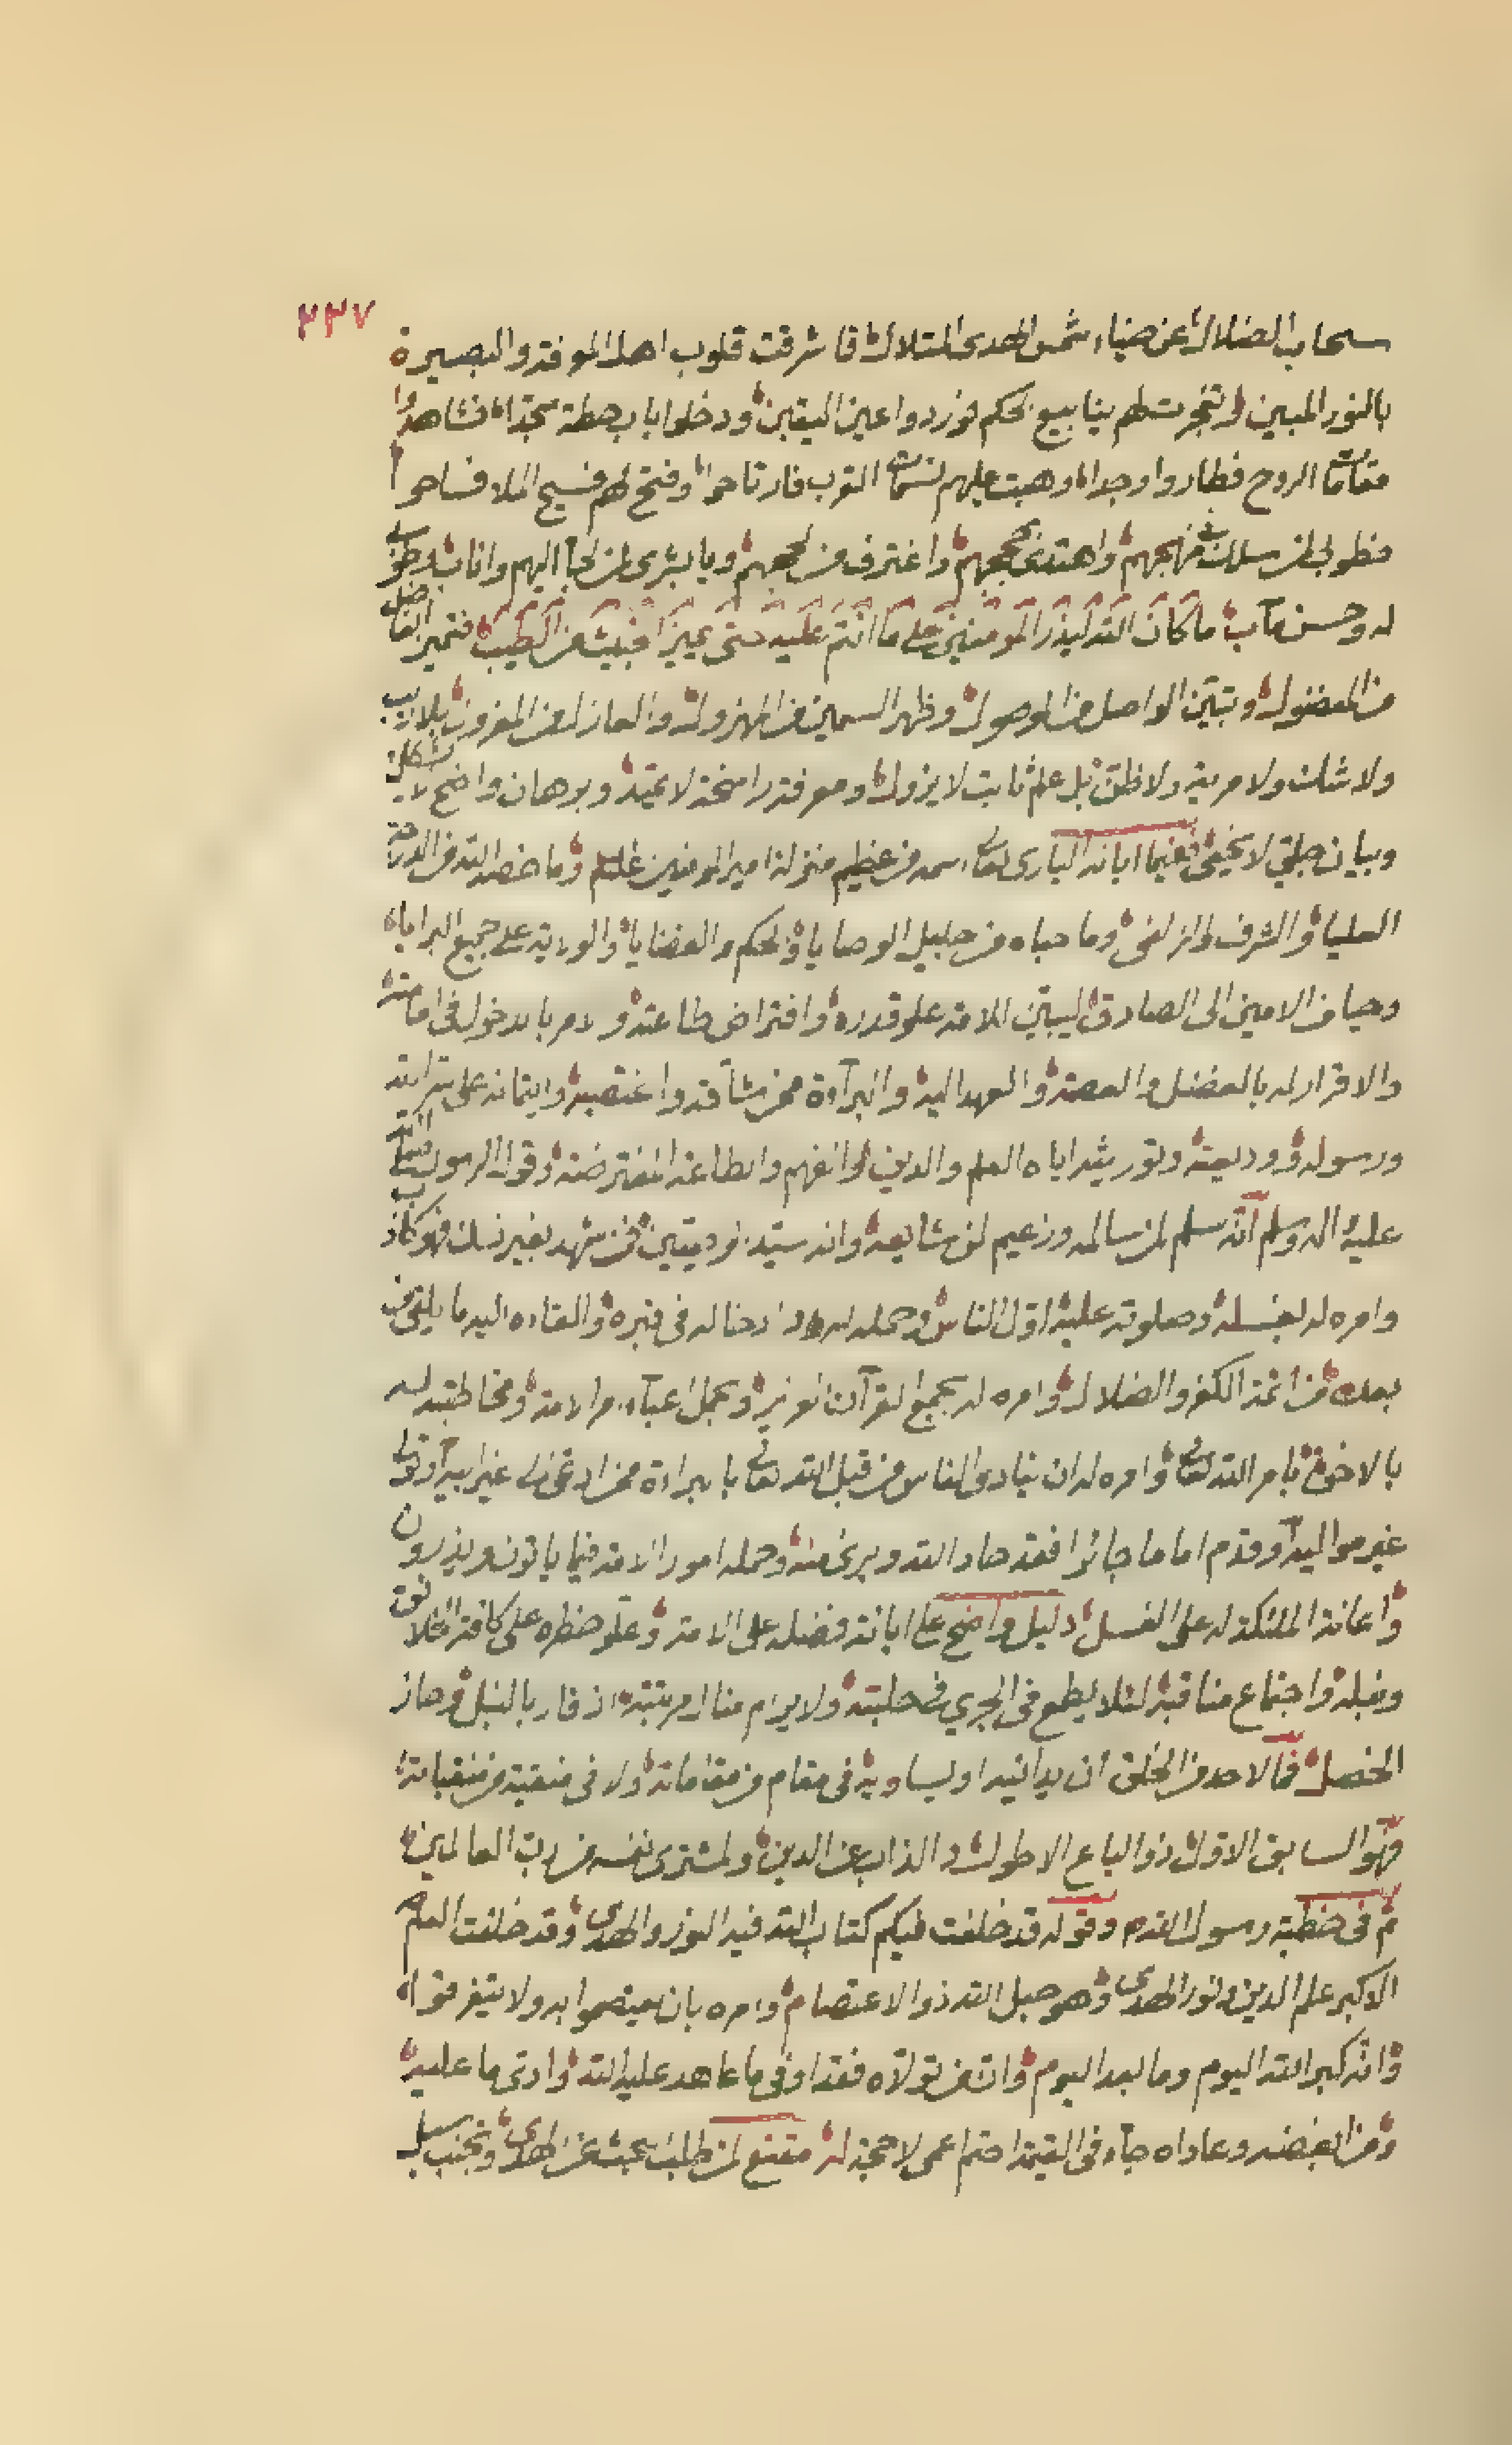 ٢٣٧
سحاب الضلال عن ضياء شمس الهدى المتلال فاشرقت قلوب اهل المعرفة والبصيرة
بالنور المبين وانفجرت لهم ينابيع الحكم فوردوا عين اليقين ودخلوا باب حطة سجدا فشاهدوا
مقامات الروح فطاروا وجدا وهبت عليهم نسمات القرب فارتاحوا وفتح لهم فسيح الملا فساحوا
فطوبى لمن سلك منهجهم واهتدى بحججهم واغترف من لججهم ويا بشرى لمن لجأ اليهم واناب وطوبى
له وحسن مآب ما كان الله ليذر المؤمنين على ما انتم عليه حتى يميز الخبيث من الطيب فتميز الفاضل
من المفضول وتبين الواصل من الموصول وظهر السمين من المهزول والعازل من المعزول بلا ريب
ولا شك ولا مرية ولا ظن بل علم ثابت لا يزول ومعرفة راسخة لا تميد وبرهان واضح لا يشكل
وبيان جلي لا يخفى ففيما ابانه البارى تعالى اسمه من عظيم منزلة امير المؤمنين علم وما خصه الله من الدرجة
العليا والشرف والزلفى وما حباه من جليل الوصايا والحكم والقضايا والولاية على جميع البرايا
وحيا من الامين الى الصادق ليبين للامة علو قدره وافتراض طاعته والامر بالدخول في امامته
والاقرار له بالفضل والعصمة والعهد اليه والبرآءة ممن شاقه واغتصبه وايتمانه على سر الله
ورسوله ووديعته وتوريثه اياه العلم والدين والطاعة المفترضة وقول الرسول صلى الله
عليه اله وسلم انه سلم لمن سالمه وزعيم لمن شايعه وانه سيد نور يقين فمن شهد بغير ذلك فهو كاذب
وامره له بغسله وصلوته عليه اول الناس وحمله له وادخاله في قبره والقاءه اليه ما يلقى من
بعده من ائمة الكفر والضلال وامره له بجمع القرآن العزيز وبحمل اعبآء امر الامة ومخاطبته له
بالاخوة بامر الله تعالى وامره له ان ينادى الناس من قبل الله تعالى بالبراءة ممن ادعى الى غير ابيه او تولى
غير مواليه وقدم اماما جائرا فقد حاد الله وبرئ منه وحمله امور الامة فيما ياتون ويذرون
واعانة الملئكة له على الغسل دليل واضح على ابانة فضله على الامة وعلو خطره على كافة الخلائق
ونبله واجتماع مناقبه لئلا يطمع في الجري في حلبته ولا يرام منال مرتبته اذ فاز بالنبل وحاز
الخصل فما لاحد من الخلق ان يدانيه او يساويه في مقام من مقاماته ولا في منقبة من منقباته
فهو السابق الاول ذو الباع الاطول والذاب عن الدين والمشترى نفسه من رب العالمين
ثم في خطبة رسول الله وقوله قد خلفت فيكم كتاب الله فيه النور والهدى وقد خلفت العلم
الاكبر علم الدين ونور الهدى وهو حبل الله ذو الاعتصام وامره بان يعتصموا به ولا يتفرقوا
وانه كبر الله اليوم وما بعد اليوم وان من تولاه فقد اوفى ما عاهد عليه الله وادى ما عليه
ومن ابغضه وعاداه جآء في القيمة اصم اعمى لا حجة له مقنع لمن طلب بحث عن الهدى وتجنب سبل